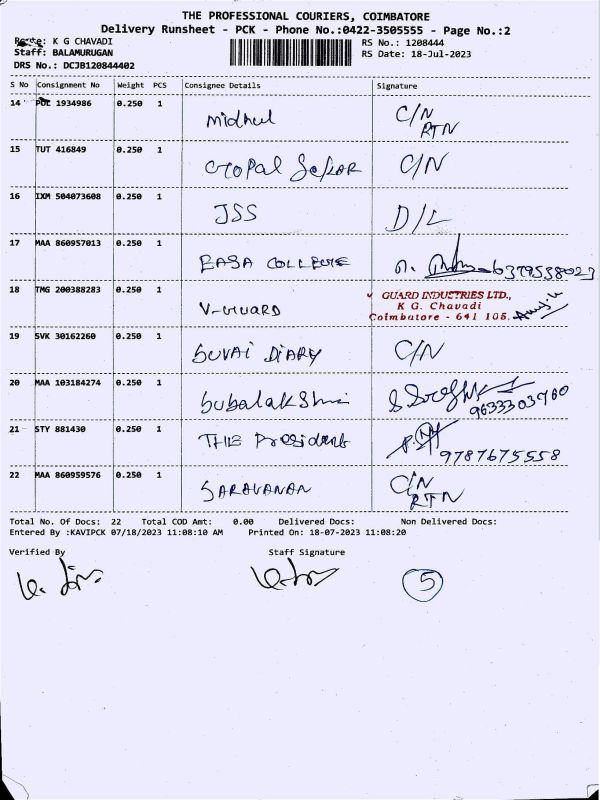 THE PROFESSIONAL COURIERS, COIMBATORE
Delivery Runsheet - PCK - Phone No.:0422-3505555 - Page No.:2
Route: K G CHAVADI RS No.: 1208444
Staff: BALAMURUGAN RS Date: 18-Jul-2023
DRS No.: DCJB120844402
S No Consignment No Weight PCS Consignee Details Signature
14 POL 1934986 0.250 1 Midhul C/N
RTN
15 TUT 416849 0.250 1 GOPal SeKAR C/N
16 IXM 504073608 0.250 1 JSS D/L
17 MAA 860957013 0.250 1 EASA COLLEGE 6379558023
18 TMG 200388283 0.250 1 V-GUARD GUARD INDUSTRIES LTD.,
K G. Chavadi
Coimbatore - 641 105.
19 SVK 30162260 0.250 1 SUVAI DIARY C/N
20 MAA 103184274 0.250 1 Subalakshmi 9633303760
21 STY 881430 0.250 1 THE President 9787675558
22 MAA 860959576 0.250 1 SARAVANAN C/N
RTN
Total No. Of Docs: 22 Total COD Amt: 0.00 Delivered Docs: Non Delivered Docs:
Entered By :KAVIPCK 07/18/2023 11:08:10 AM Printed On: 18-07-2023 11:08:20
Verified By Staff Signature
5